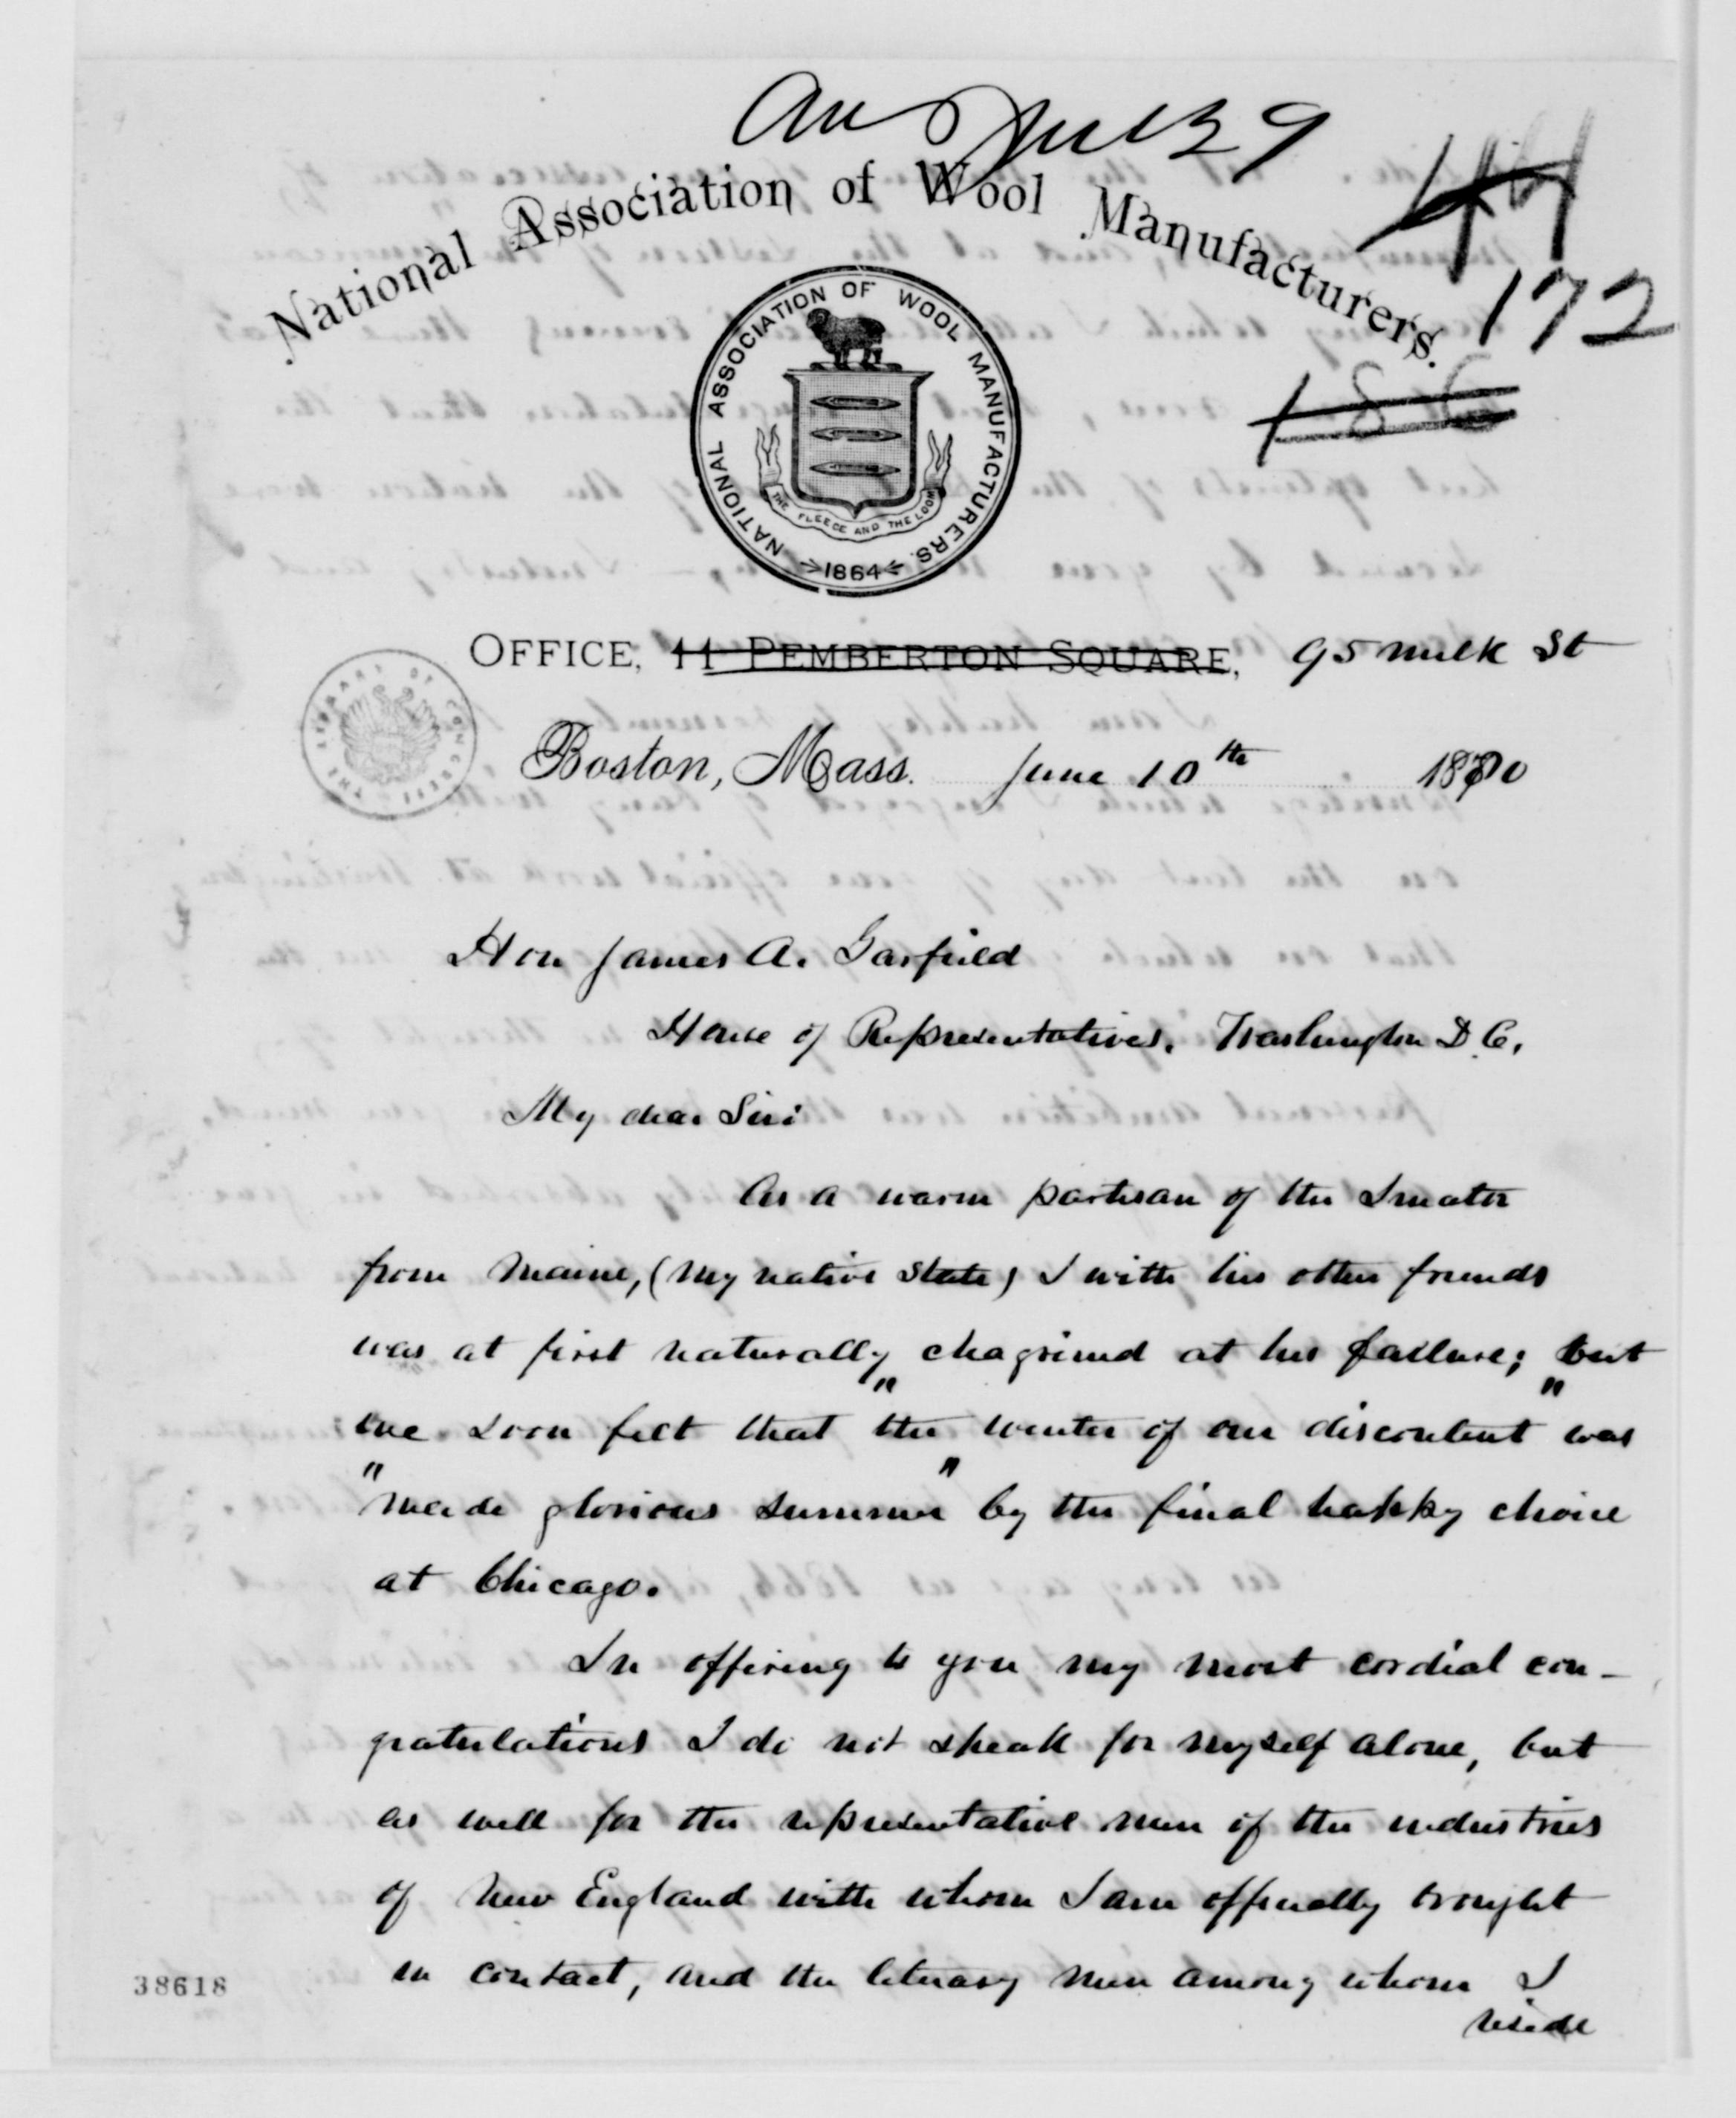 Ans June 29
National Association of Wool Manufacturers.
44
172
186
NATIONAL ASSOCIATION OF WOOL MANUFACTURERS.
THE FLEECE AND THE LOOM
1864
OFFICE, 11 PEMBERTON SQUARE, 95 Milk St
THE LIBRARY OF CONGRESS
Boston, Mass. June 10th 1880
Hon James A. Garfield
House of Representatives. Washington D.C.
My dear Sir:
As a warm partisan of the Senator
from Maine, (my native State) I with his other friends
was at first naturally chagrined at his failure; but
we soon felt that "the winter of our discontent" was
"made glorious summer" by the final happy choice
at Chicago.
In offering to you my most cordial con-
gratulations I do not speak for myself alone, but
as well for the representative men of the industries
of New England with whom I am officially brought
in contact, and the literary men among whom I
reside
38618